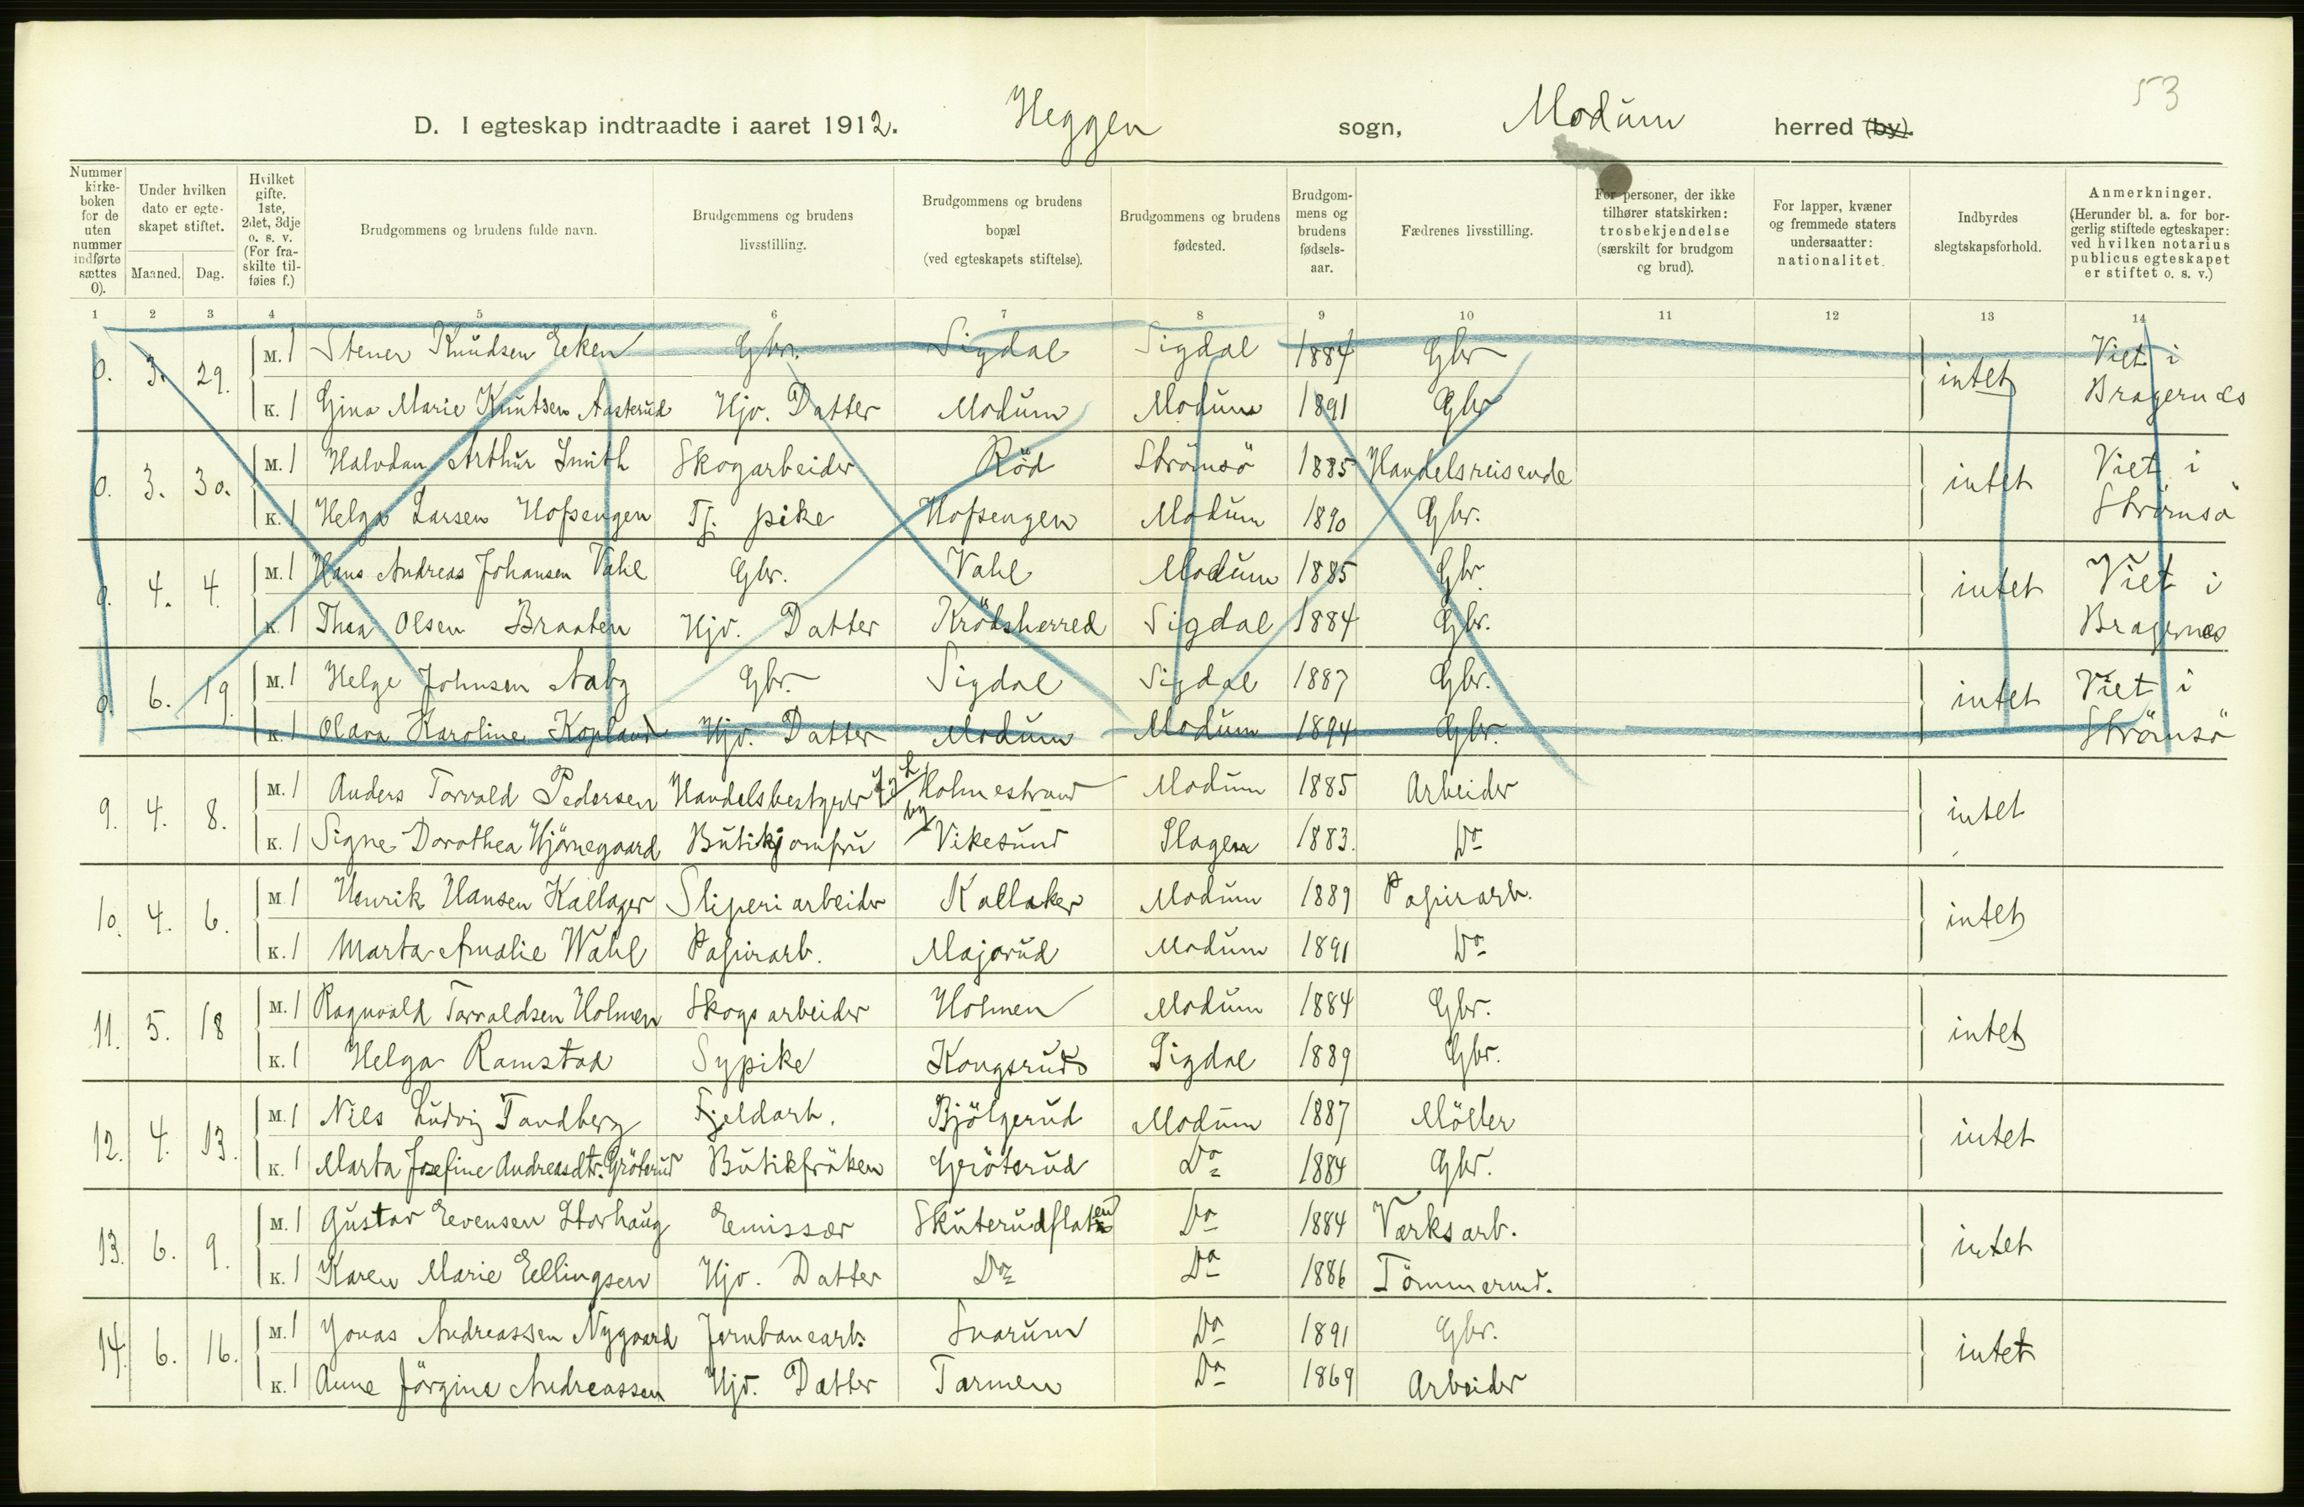 53
D. I egteskap indtraadte i aaret 1912. Heggen sogn, Modum herred (by).
Nummer kirkeboken for de uten nummer indførte sættes 0).
Under hvilken dato er egteskapet stiftet.
Maaned. Dag.
Hvilket gifte. 1ste, 2det, 3dje o. s. v. (For fraskilte tilføies f.)
Brudgommens og brudens fulde navn.
Brudgommens og brudens livsstilling.
Brudgommens og brudens bopæl (ved egteskapets stiftelse).
Brudgommens og brudens fødested.
Brudgommens og brudens fødselsaar.
Fædrenes livsstilling.
For personer, der ikke tilhører statskirken: trosbekjendelse (særskilt for brudgom og brud).
For lapper, kvæner og fremmede staters undersaatter: nationalitet.
Indbyrdes slegtskapsforhold.
Anmerkninger. (Herunder bl. a. for borgerlig stiftede egteskaper: ved hvilken notarius publicus egteskapet er stiftet o. s. v.)
1 2 3 4 5 6 7 8 9 10 11 12 13 14
0. 3. 29. M. 1 Stener Knudsen Eeken Gbr. Sigdal Sigdal 1884 Gbr intet Viet i Bragernes
K. 1 Gina Marie Knutsen Aasterud Hjv. Datter Modum Modum 1891 Gbr
0. 3. 30. M. 1 Halvdan Arthur Smith Skogarbeider Röd Strömsö 1885 Handelsreisende intet Viet i Strömsö
K. 1 Helga Larsen Hofsengen Tj. pike Hofsengen Modum 1890 Gbr.
0. 4. 4. M. 1 Hans Andreas Johansen Vahl Gbr. Vahl Modum 1885 Gbr. intet Viet i Bragernes
K. 1 Thea Olsen Braaten Hjv. Datter Krödsherred Sigdal 1884 Gbr.
0. 6. 19. M. 1 Helge Johnsen Aaby Gbr. Sigdal Sigdal 1887 Gbr. intet Viet i Strömsö
K. 1 Olava Karoline Kopland Hjv. Datter Modum Modum 1894 Gbr.
9. 4. 8. M. 1 Anders Torvald Pedersen Handelsbestyrer Holmestrand Modum 1885 Arbeider intet
K. 1 Signe Dorothea Hjörnegaard Butikjomfru Vikesund Slagen 1883. Do
10. 4. 6. M. 1 Henrik Hansen Kallager Sliperiarbeider Kallaker Modum 1889 Papirarb. intet
K. 1 Marta Amalie Wahl Papirarb. Majorud Modum 1891 Do
11. 5. 18 M. 1 Ragnvald Torvaldsen Holmen Skogsarbeider Holmen Modum 1884 Gbr. intet
K. 1 Helga Ramstad Sypike Kongsrud Sigdal 1889 Gbr.
12. 4. 13. M. 1 Nils Ludvig Tandberg Fjeldarb. Bjölgerud Modum 1887 Möller intet
K. 1 Marta Josefine Andreasdtr. Gröterud Butikfröken Gröterud Do 1884 Gbr.
13. 6. 9. M. 1 Gustav Evensen Storhaug Emissær Skuterudflaten Do 1884 Værksarb. intet
K. 1 Karen Marie Ellingsen Hjv. Datter Do Do 1886 Tömmermd.
14. 6. 16. M. 1 Jonas Andreassen Nygaard Jernbanearb. Snarum Do 1891 Gbr. intet
K. 1 Anne Jörgine Andreassen Hjv. Datter Tormen Do 1869 Arbeider